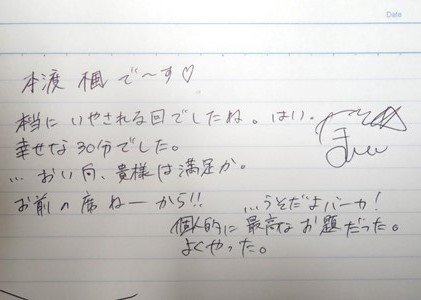 Date
本渡 楓 で〜す♡
本当に いやされる回でしたね。はい。
幸せな30分でした。
... おい向、貴様は満足か。
お前の席ねーから!! ...うそだよバーカ!
個人的に 最高なお題だった。
よくやった。